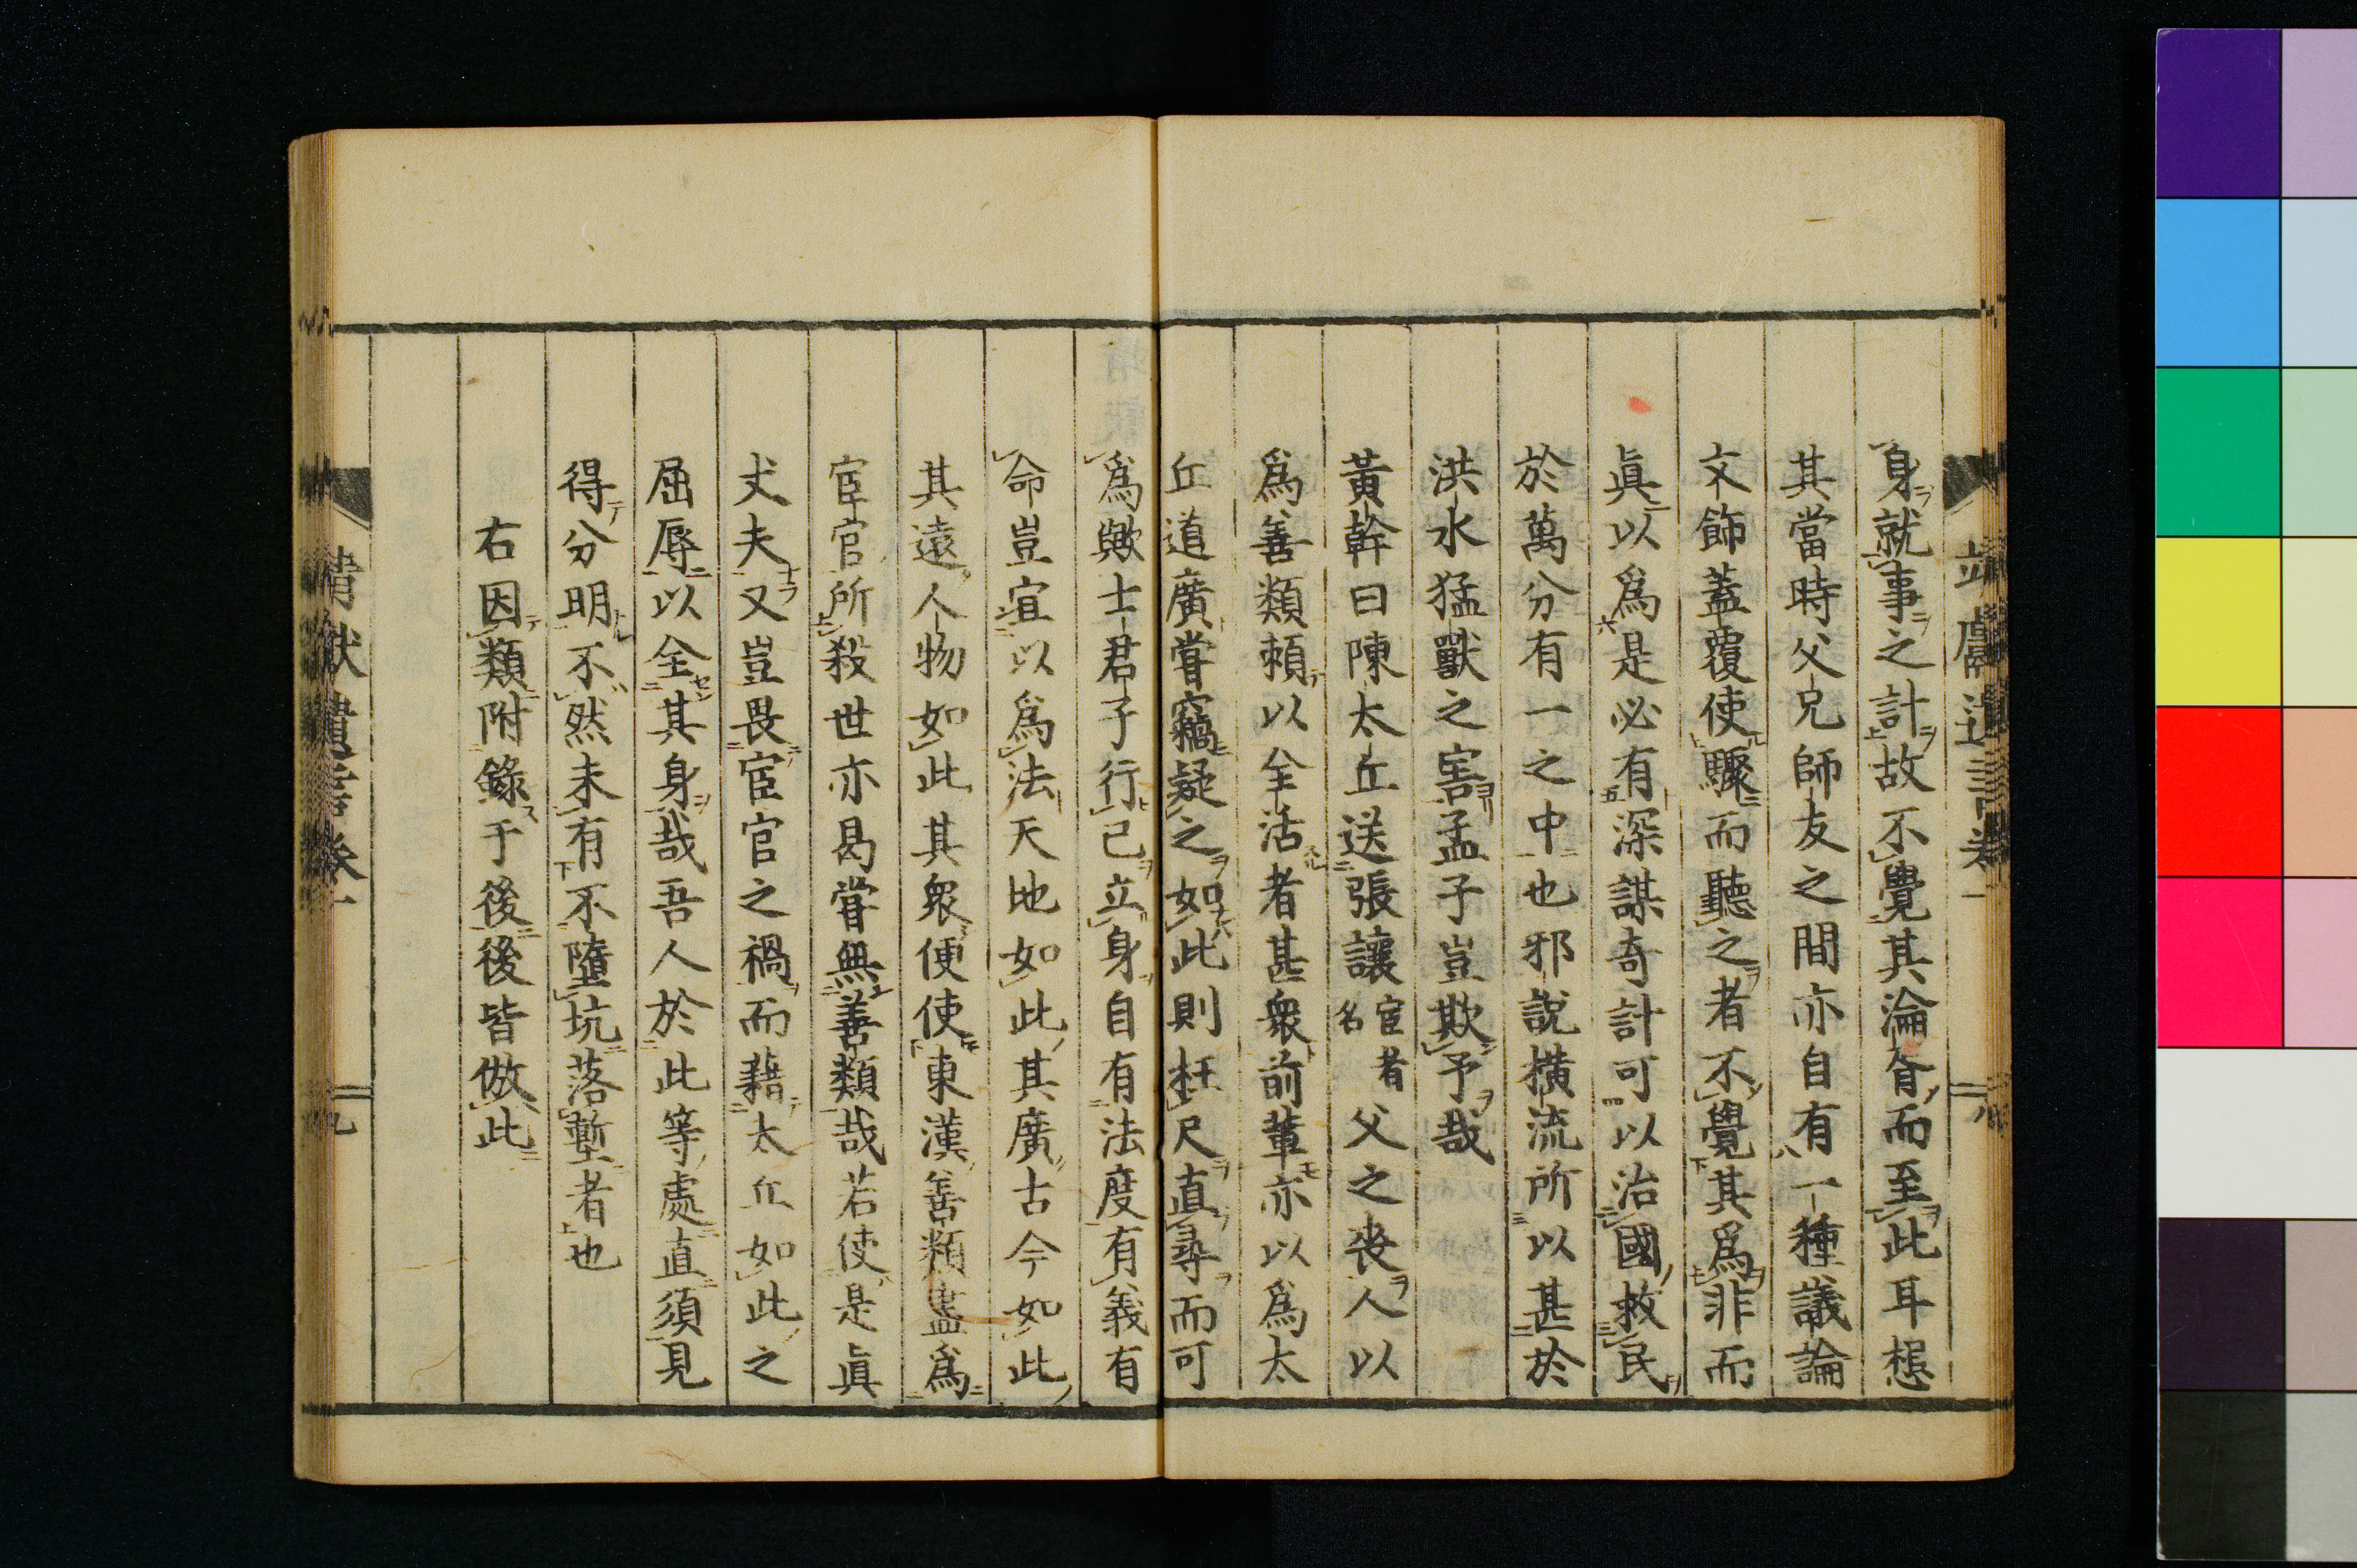 身就事之計故不覺其淪胥而至此耳想
其當時父兄師友之間亦自有一種議論
文飾蓋覆使驟而聽之者不覺其爲非而
眞以爲是必有深謀奇計可以治國救民
於萬分有一之中也邪說横流所以甚於
洪水猛獸之害孟子豈欺予哉
黃幹曰陳太丘送張讓宦者名父之喪人以
爲善類頼以全活者甚衆前輩亦以爲太
丘道廣嘗竊疑之如此則枉尺直尋而可
爲歟士君子行己立身自有法度有義有
命豈宜以爲法天地如此其廣古今如此
其遠人物如此其衆便使東漢善類盡爲
宦官所殺世亦曷嘗無善類哉若使是眞
丈夫又豈畏宦官之禍而藉太丘如此之
屈辱以全其身哉吾人於此等處直須見
得分明不然未有不墮坑落塹者也
右因類附錄于後後皆倣此
九